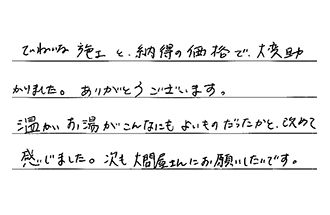 ていねいな施工と、納得の価格で、大変助
かりました。ありがとうございます。
温かいお湯がこんなにもよいものだったかと、改めて
感じました。次も大問屋さんにお願いしたいです。